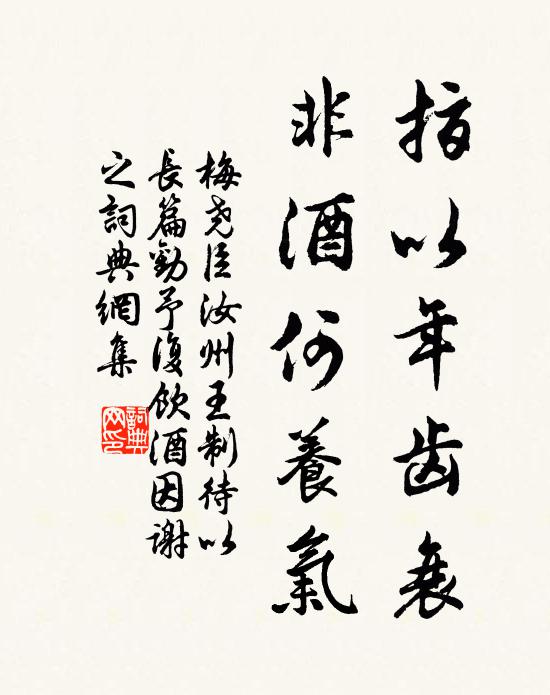 指以年齿衰
非酒何養氣
梅尧臣汝州王制待以
長篇勸予復飲酒因謝
之詞典網集
詞典
网印